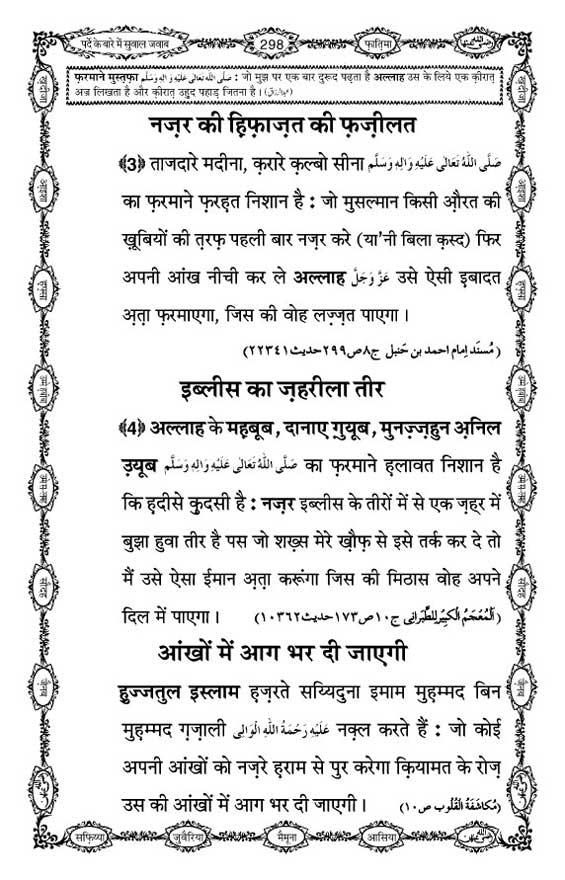 पर्दे के बारे में सुवाल जवाब
298
फ़ातिमा
फ़रमाने मुस्तफ़ा صَلَّى اللهُ تَعَالٰى عَلَيْهِ وَاٰلِهٖ وَسَلَّم : जो मुझ पर एक बार दुरूद पढ़ता है अल्लाह उस के लिये एक क़ीरात
अज्र लिखता है और क़ीरात उहुद पहाड़ जितना है।
नज़र की हिफ़ाज़त की फ़ज़ीलत
﴾3﴿ ताजदारे मदीना, क़रारे क़ल्बो सीना صَلَّى اللهُ تَعَالٰى عَلَيْهِ وَاٰلِهٖ وَسَلَّم
का फ़रमाने फ़रहत निशान है : जो मुसलमान किसी औ़रत की
ख़ूबियों की त़रफ़ पहली बार नज़र करे (या'नी बिला क़स्द) फिर
अपनी आंख नीची कर ले अल्लाह عَزَّ وَجَلَّ उसे ऐसी इबादत
अ़ता फ़रमाएगा, जिस की वोह लज़्ज़त पाएगा।
(مُسنَد اِمام احمد بن حَنبل ج۸ص۲۹۹حدیث۲۲۳۴۱)
इब्लीस का ज़हरीला तीर
﴾4﴿ अल्लाह के मह़बूब, दानाए ग़ुयूब, मुनज़्ज़हुन अ़निल
उ़यूब صَلَّى اللهُ تَعَالٰى عَلَيْهِ وَاٰلِهٖ وَسَلَّم का फ़रमाने ह़लावत निशान है
कि ह़दीसे क़ुदसी है : नज़र इब्लीस के तीरों में से एक ज़ह्र में
बुझा हुवा तीर है पस जो शख़्स मेरे ख़ौफ़ से इसे तर्क कर दे तो
मैं उसे ऐसा ईमान अ़ता करूंगा जिस की मिठास वोह अपने
दिल में पाएगा। (اَلْمُعْجَمُ الْكبِيْر لِلطّبَرَانِى ج۱۰ص۱۷۳حدیث۱۰۳۶۲)
आंखों में आग भर दी जाएगी
हुज्जतुल इस्लाम ह़ज़रते सय्यिदुना इमाम मुह़म्मद बिन
मुह़म्मद ग़ज़ाली عَلَيْهِ رَحْمَةُ اللهِ الْوَالِى नक़्ल करते हैं : जो कोई
अपनी आंखों को नज़रे ह़राम से पुर करेगा क़ियामत के रोज़
उस की आंखों में आग भर दी जाएगी। (مُكاشَفَةُ الْقُلُوب ص۱۰)
सफ़िय्या
जुवैरिया
मैमूना
आसिया